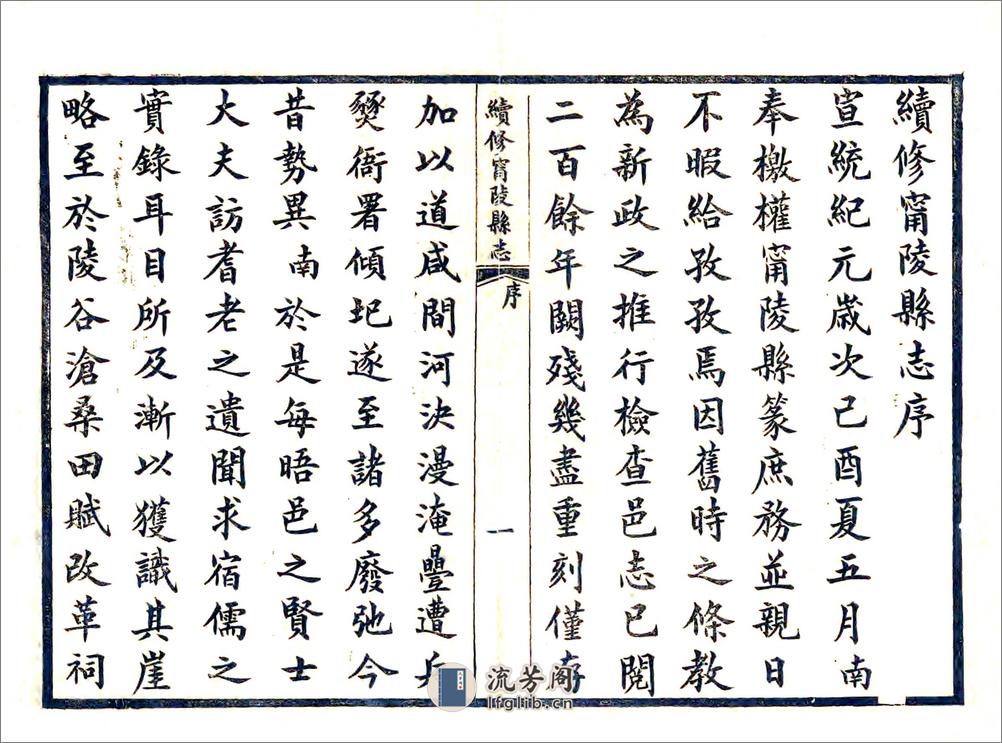 續修甯陵縣志序
宣統紀元歲次己酉夏五月南
奉檄權甯陵縣篆庶務並親日
不暇給孜孜焉因舊時之條教
為新政之推行檢查邑志已閱
二百餘年闕殘幾盡重刻僅存
續修甯陵縣志
序
一
加以道咸間河決漫淹疊遭兵
燹衙署傾圮遂至諸多廢弛今
昔勢異南於是每晤邑之賢士
大夫訪耆老之遺聞求宿儒之
實錄耳目所及漸以獲識其崖
略至於陵谷滄桑田賦改革祠
流芳阁
lfglib.cn